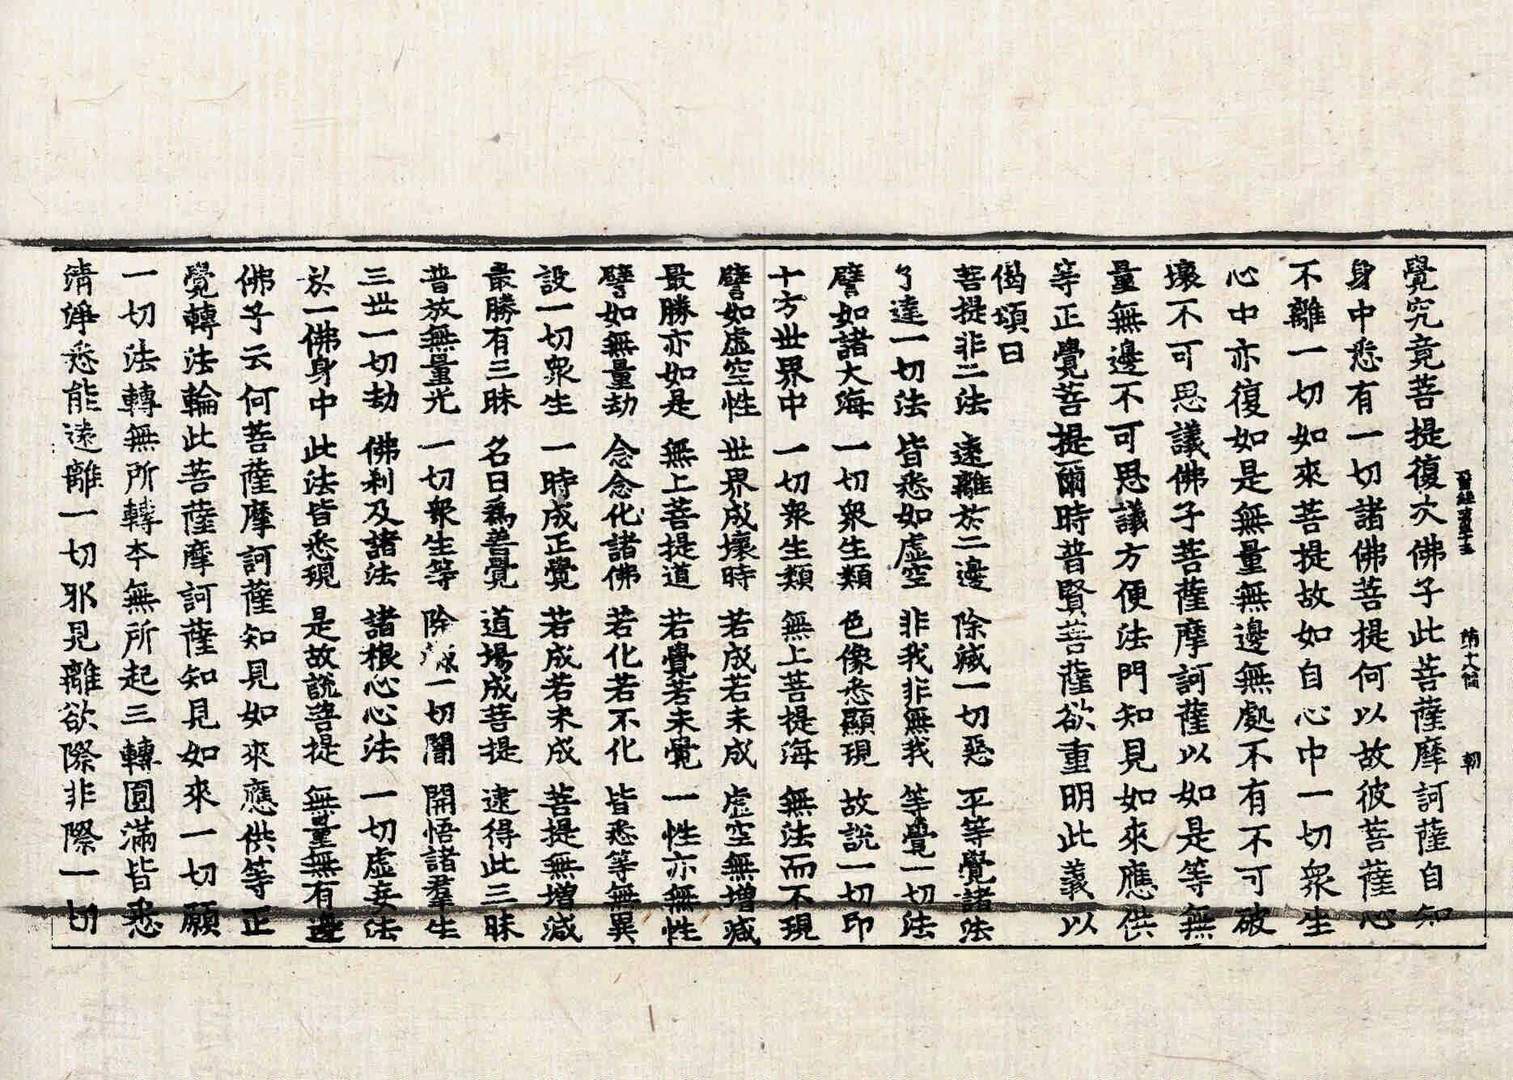 覺究竟菩提復次佛子此菩薩摩訶薩自知
身中悉有一切諸佛菩提何以故彼菩薩心
不離一切如來菩提故如自心中一切衆生
心中亦復如是無量無邊無處不有不可破
壞不可思議佛子菩薩摩訶薩以如是等無
量無邊不可思議方便法門知見如來應供
等正覺菩提爾時普賢菩薩欲重明此義以
偈頌曰
菩提非二法　遠離於二邊　除滅一切惡　平等覺諸法
了達一切法　皆悉如虛空　非我非無我　等覺一切法
譬如諸大海　一切衆生類　色像悉顯現　故說一切印
十方世界中　一切衆生類　無上菩提海　無法而不現
譬如虛空性　世界成壞時　若成若未成　虛空無增減
最勝亦如是　無上菩提道　若覺若未覺　一性亦無性
譬如無量劫　念念化諸佛　若化若不化　皆悉等無異
設一切衆生　一時成正覺　若成若未成　菩提無增減
最勝有三昧　名曰爲善覺　道場成菩提　逮得此三昧
普放無量光　一切衆生等　除一切闇　開悟諸羣生
三世一切劫　佛刹及諸法　諸根心心法　一切虛妄法
於一佛身中　此法皆悉現　是故說菩提　無量無有邊
佛子云何菩薩摩訶薩知見如來應供等正
覺轉法輪此菩薩摩訶薩知見如來一切願
一切法轉無所轉本無所起三轉圓滿皆悉
清淨悉能遠離一切邪見離欲際非際一切